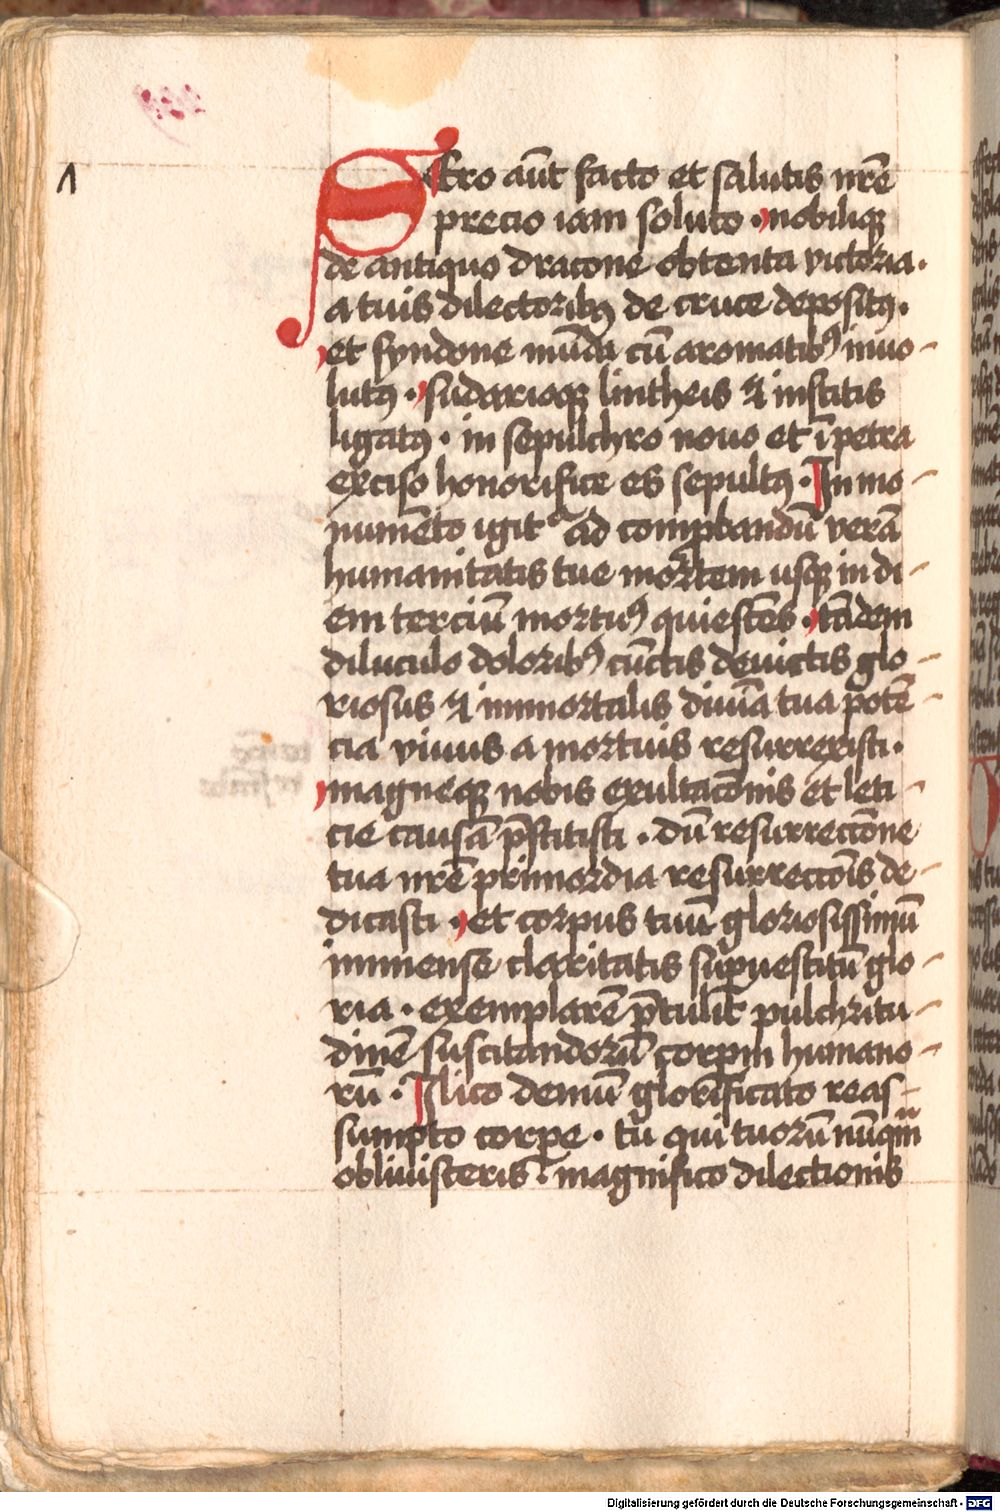 SEro aūt facto et salutis nr̄e
precio iam soluto · nobiliqꝫ
de antiquo dracone obtenta victoria ·
a tuis dilectoribꝰ de cruce depositꝰ ·
et syndone mūda cū aromatibꝰ inuo-
lutꝰ · sudarioqꝫ lintheis ⁊ institis
ligatꝰ · in sepulchro nouo et ī petra
exciso honorifice es sepultꝰ · In mo-
numēto igitᷣ ad comꝓbandū verā
humanitatis tue mortem usqꝫ in di-
em terciū mortuꝰ quiescēs · tādem
diluculo doloribꝰ cūctis deuictis glo-
riosus ⁊ immortalis diuīa tua potē-
cia viuus a mortuis resurrexisti ·
magneqꝫ nobis exultacōnis et leti-
cie causā p̄stitisti · dū resurrectōne
tua nr̄e primordia resurrectōīs de-
dicasti · et corpus tuū gloriosissimū
immense claritatis suꝑuestitū glo-
ria · exemplarē p̄tulit pulchritu-
dinē suscitandorū corꝑm humano-
rū · Ilico demū glorificato reas-
sumpto corꝑe · tu qui tuorū nūqm̄
obliuisceris · magnifico dilectionis
Digitalisierung gefördert durch die Deutsche Forschungsgemeinschaft - DFG